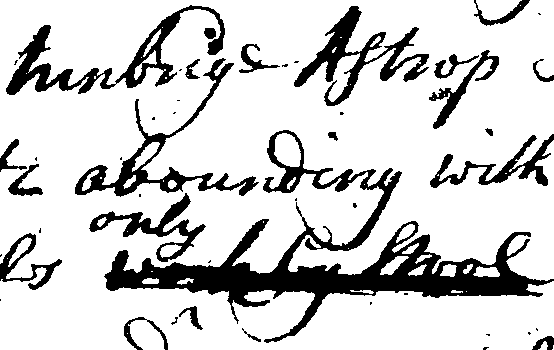 tunbrige Astrop
abounding with
only
by Stool